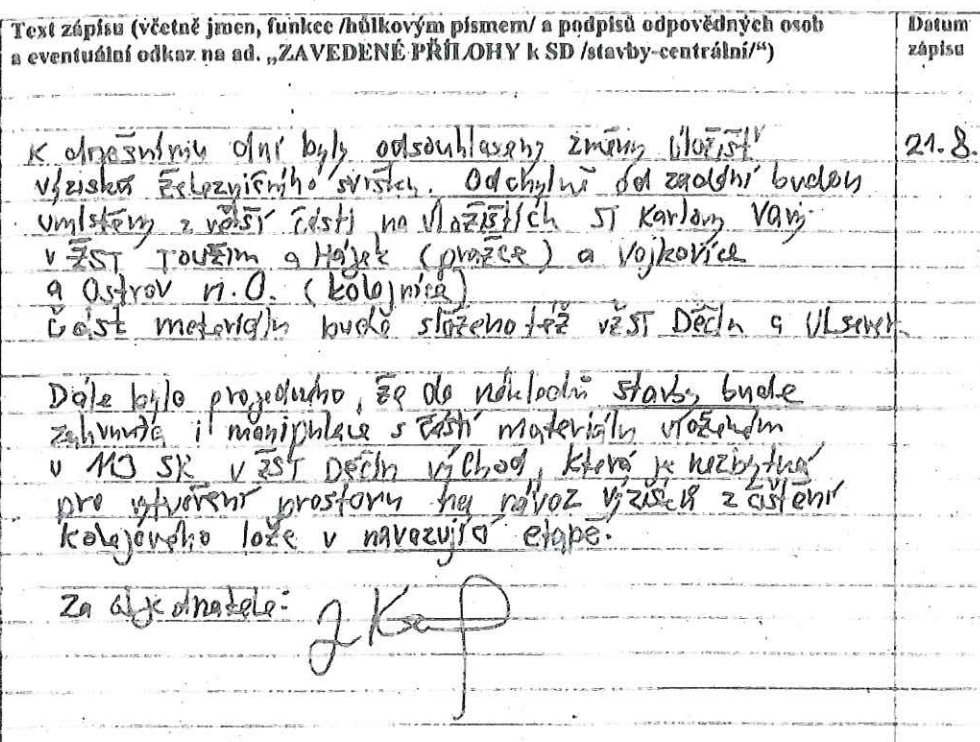 Text zápisu (včetně jmen, funkce /hůlkovým písmem/ a podpisů odpovědných osob
a eventuální odkaz na ad. „ZAVEDENÉ PŘÍLOHY k SD /stavby-centrální/“)
Datum
zápisu
K dnešnímu dni byly odsouhlaseny změny úložišť
výzisku železničního svršku. Odchylně od zadání budou
umístěny z větší části na úložištích ST Karlovy Vary
v ŽST Toužim a Hájek (pražce) a Vojkovice
a Ostrov n.O. (kolejnice)
Část materiálu bude složeno též v ŽST Děčín a UL sever.
21.8.
Dále bylo projednáno, že do nákladů stavby bude
zahrnuta i manipulace s částí materiálu uloženém
v 113 SK v ŽST Děčín východ, která je nezbytná
pro vytvoření prostoru na návoz výzisku z čištění
kolejového lože v navazující etapě.
Za objednatele: